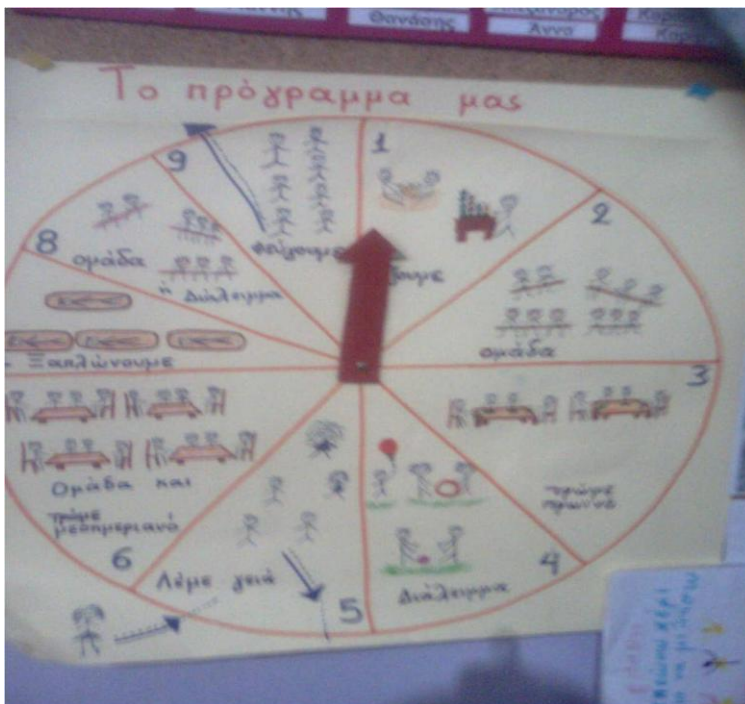 Θανάσης
Άννα
Το πρόγραμμα μας
1
2
ομάδα
3
τρώμε
πρωινό
4
Διάλειμμα
5
Λέμε γειά
6
Ομάδα και
τρώμε
μεσημεριανό
Ξαπλώνουμε
8
ομάδα
ή Διάλειμμα
9
φεύγουμε
χέρι